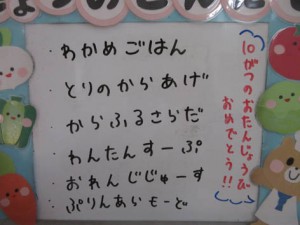 ・わかめごはん
・とりのからあげ
・からふるさらだ
・わんたんすーぷ
・おれんじじゅーす
・ぷりんあらもーど
10がつのおたんじょうび
おめでとう!!